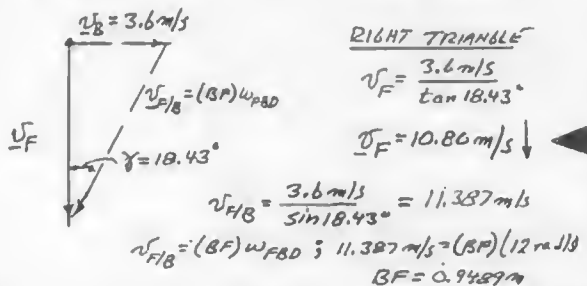 v_B = 3.6 m/s
v_F/B = (BF) ω_FBD
v_F
γ = 18.43°
RIGHT TRIANGLE
v_F = 3.6 m/s / tan 18.43°
v_F = 10.80 m/s ↓
v_F/B = 3.6 m/s / sin 18.43° = 11.387 m/s
v_F/B = (BF) ω_FBD ; 11.387 m/s = (BF)(12 rad/s)
BF = 0.9489 m